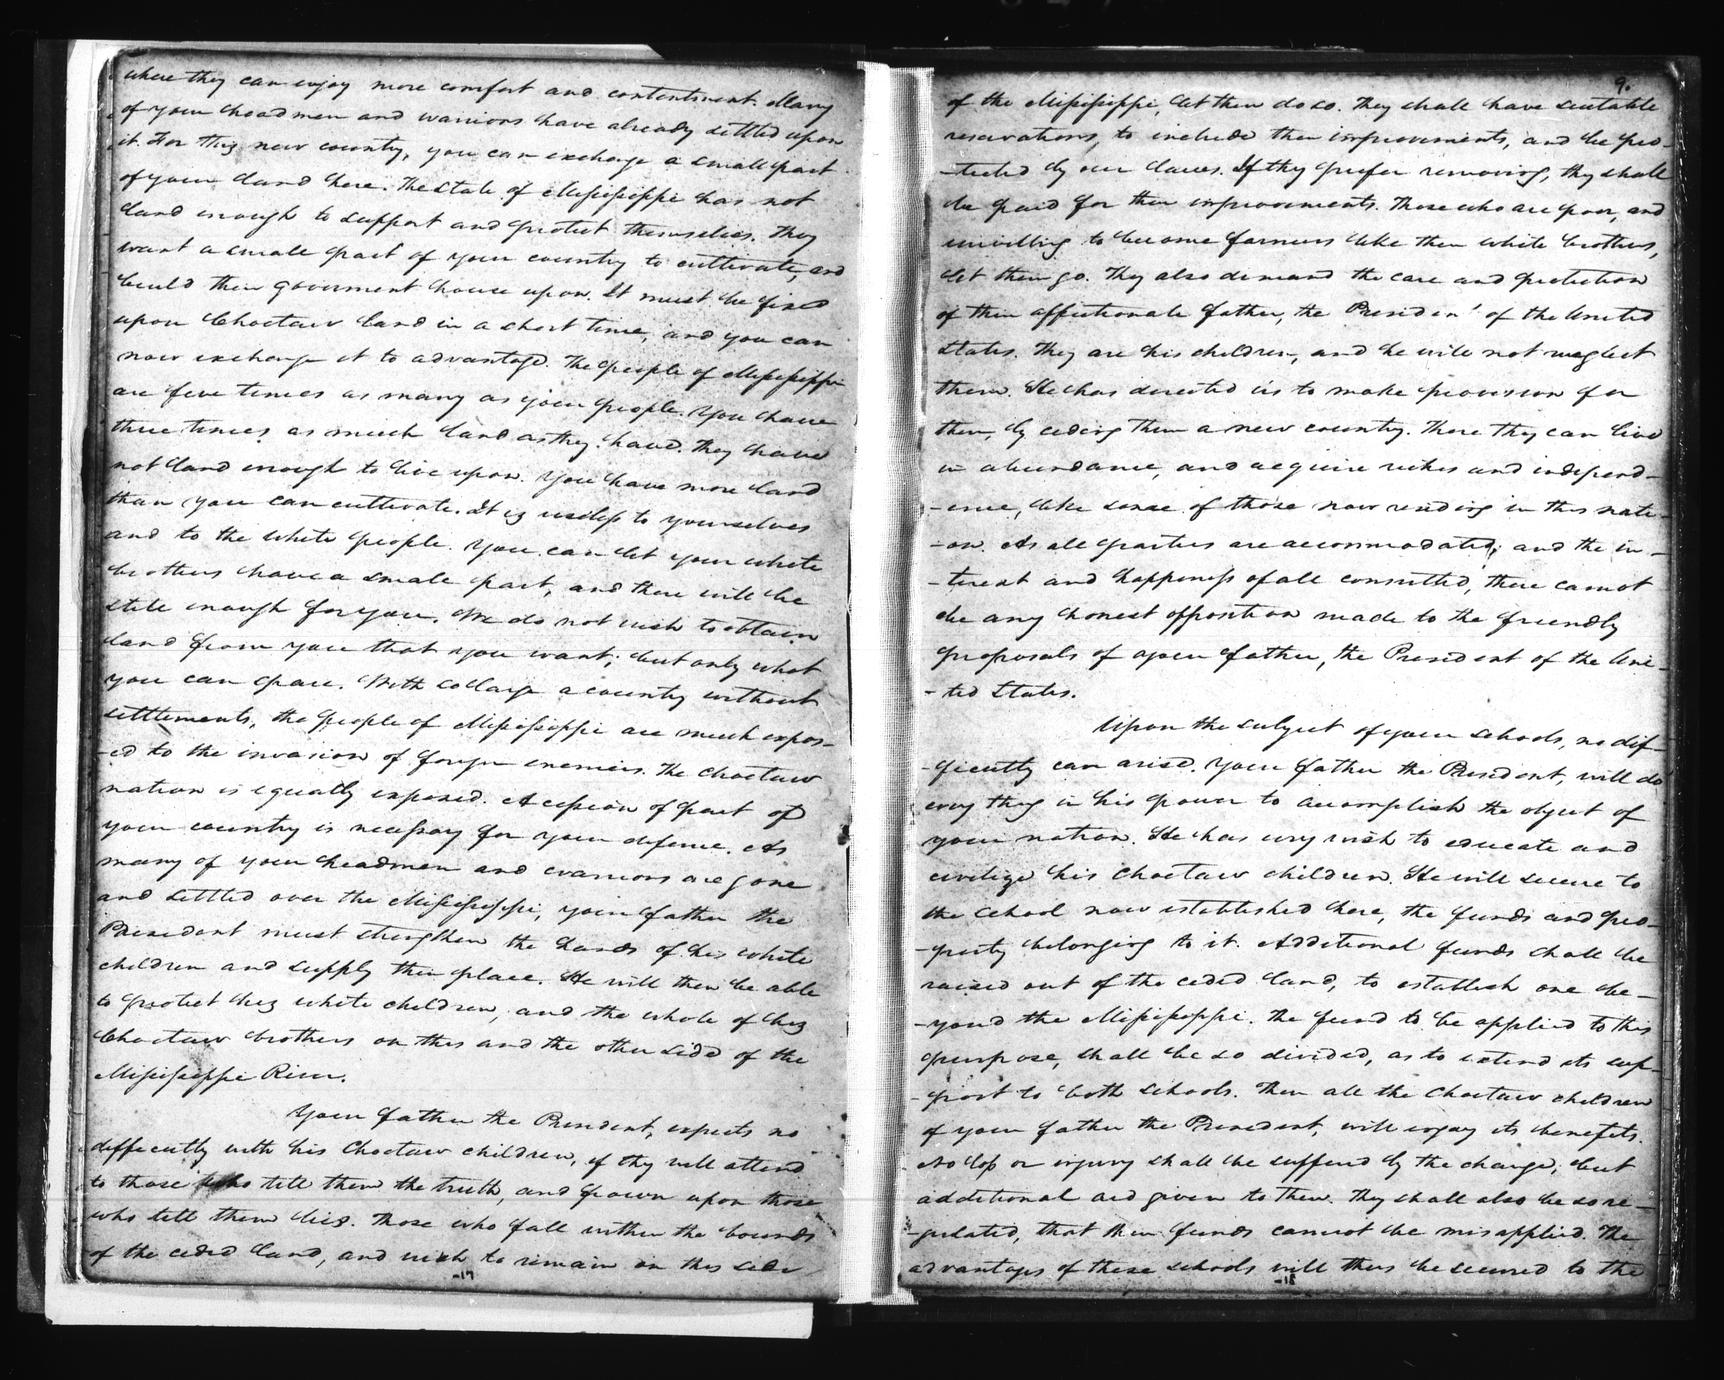 where they can enjoy more comfort and contentment. Many
of your headmen and warriors have already settled upon
it. For this new country, you can exchange a small part
of your land here. The State of Missisippi has not
land enough to support and protect themselves. They
want a small part of your country to cultivate, and
build their government house upon. It must be fixed
upon Choctaw land in a short time, and you can
now exchange it to advantage. The people of Missisippi
are five times as many as your people. You have
three times as much land as they have. They have
not land enough to live upon. You have more land
than you can cultivate. It is useless to yourselves
and to the white people. You can let your white
brothers have a small part, and there will be
still enough for you. We do not wish to obtain
land from you that you want; but only what
you can spare. With so large a country without
settlements, the people of Missisippi are much expos-
-ed to the invasion of foreign enemies. The Choctaw
nation is equally exposed. A cession of part of
your country is necessary for your defence. As
many of your headmen and warriors are gone
and settled over the Missisippi, your father the
President must strengthen the hands of his white
children and supply their place. He will then be able
to protect his white children, and the whole of his
Choctaw brothers on this and the other side of the
Missisippi River.
Your father the President, expects no
difficulty with his Choctaw children, if they will attend
to those who tell them the truth, and frown upon those
who tell them lies. Those who fall within the bounds
of the ceded land, and wish to remain on this side
-17
9.
of the Missisippi, let them do so. They shall have suitable
reservations, to include their improvements, and be pro-
-tected by our laws. If they prefer removing, they shall
be paid for their improvements. Those who are poor, and
unwilling to become farmers like their white brothers,
let them go. They also demand the care and protection
of their affectionate father, the President of the United
States. They are his children, and he will not neglect
them. He has directed us to make provision for
them, by ceding them a new country. There they can live
in abundance, and acquire riches and independ-
-ence, like some of those now residing in this nati-
-on. As all parties are accommodated, and the in-
-terest and happiness of all consulted, there cannot
be any honest opposition made to the friendly
proposals of your father, the President of the Uni-
-ted States.
Upon the subject of your schools, no dif-
-ficulty can arise. Your father the President, will do
every thing in his power to accomplish the object of
your nation. He has every wish to educate and
civilize his Choctaw children. He will secure to
the school now established here, the funds and pro-
-perty belonging to it. Additional funds shall be
raised out of the ceded land, to establish one be-
-yond the Missisippi. The fund to be applied to this
purpose, shall be so divided, as to extend its sup-
-port to both schools. Then all the Choctaw children
of your father the President, will enjoy its benefits.
No loss or injury shall be suffered by the change, but
additional aid given to them. They shall also be so re-
-gulated, that their funds cannot be misapplied. The
advantages of these schools will thus be secured to the
-18